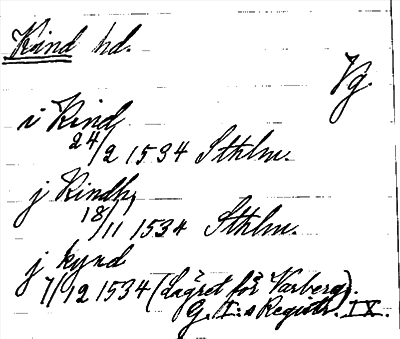 Kind hd.
Vg.
i Kind
24/2 1534 Sthlm.
j Kindh
18/11 1534 Sthlm.
j kynd
7/12 1534 (Lägret för Varberg).
G. I:s Registr. IX.